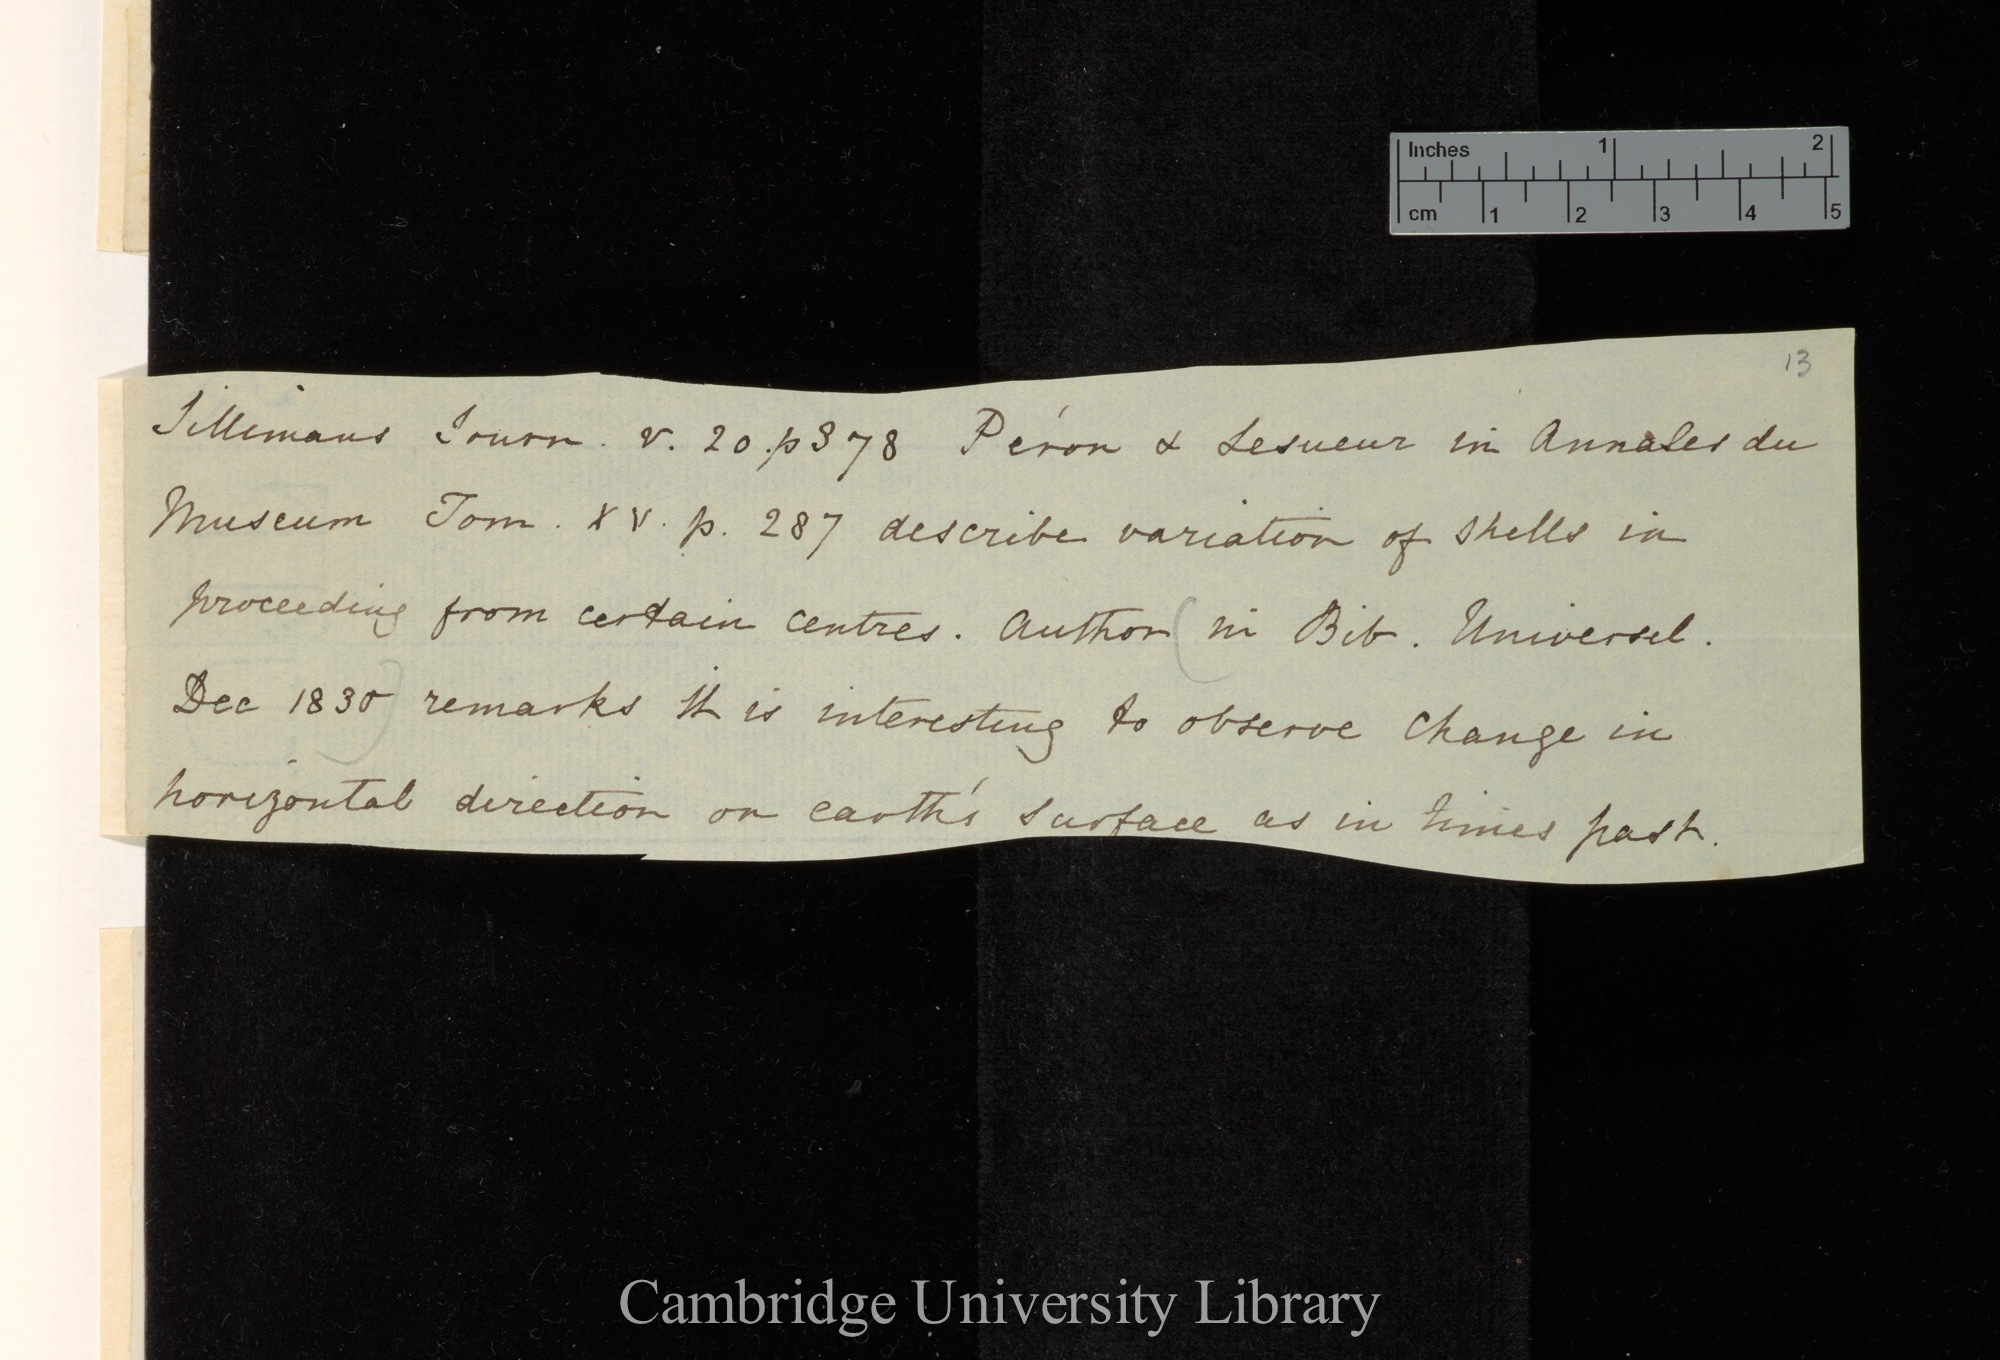 Inches 1 2
cm 1 2 3 4 5
13
Sillimans Journ. v. 20. p 378 Péron & Lesueur in Annales du
Museum Tom. XV. p. 287 describe variation of shells in
proceeding from certain centres. Author (in Bib. Universel.
Dec 1830) remarks it is interesting to observe change in
horizontal direction on earth's surface as in times past.
Cambridge University Library